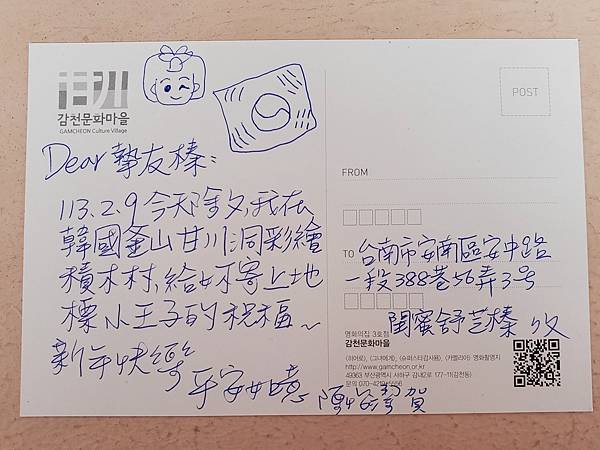 감천문화마을
GAMCHEON Culture Village
Dear 摯友榛:
113.2.9 今天除夕,我在
韓國釜山甘川洞彩繪
積木村,給妳寄上地
標小王子的祝福~
新年快樂
平安如意
陳 賀
POST
FROM
TO 台南市安南區安中路
一段388巷56弄3号
閨蜜舒芝榛 收
영화의집 3호점
감천문화마을
(히어로), (그녀에게), (슈퍼스타감사용), (카멜리아) 영화촬영지
http://www.gamcheon.or.kr
49363 부산광역시 사하구 감내2로 177-11(감천동)
문의 070-4219-5556